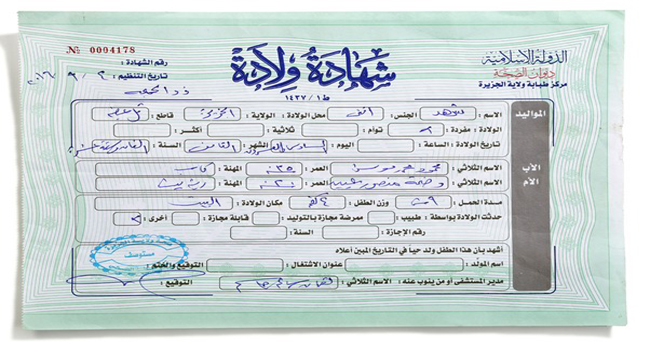 الدولة الإسلامية
ديوان الصحة
مركز طبابة ولاية الجزيرة
شهادة ولادة
ط١ / ١٤٣٧
№ 0004178
رقم الشهادة :
تاريخ التنظيم : ٢ / ٩ / ٢٠١٦
المواليد
الاسم : الجنس : أنثى محل الولادة : الولاية : الجزيرة قاطع :
الولادة : مفردة : توأم : ثلاثية : أكثر :
تاريخ الولادة : الساعة : اليوم : السادس والعشرون الشهر : الثامن السنة :
الأب
الاسم الثلاثي : محمود العمر : ٣٥ المهنة : كاسب
الأم
الاسم الثلاثي : العمر : ٢٠ المهنة : ربة بيت
مدة الحمل : ٩ وزن الطفل : ٤ كغم مكان الولادة : البيت
حدثت الولادة بواسطة : طبيب : ممرضة مجازة بالتوليد : قابلة مجازة : أخرى :
رقم الإجازة : السنة :
أشهد بأن هذا الطفل ولد حياً في التاريخ المبين أعلاه
اسم المولّد : عنوان الاشتغال : التوقيع والختم :
مدير المستشفى أو من ينوب عنه : الاسم الثلاثي : التوقيع :
مستوصف